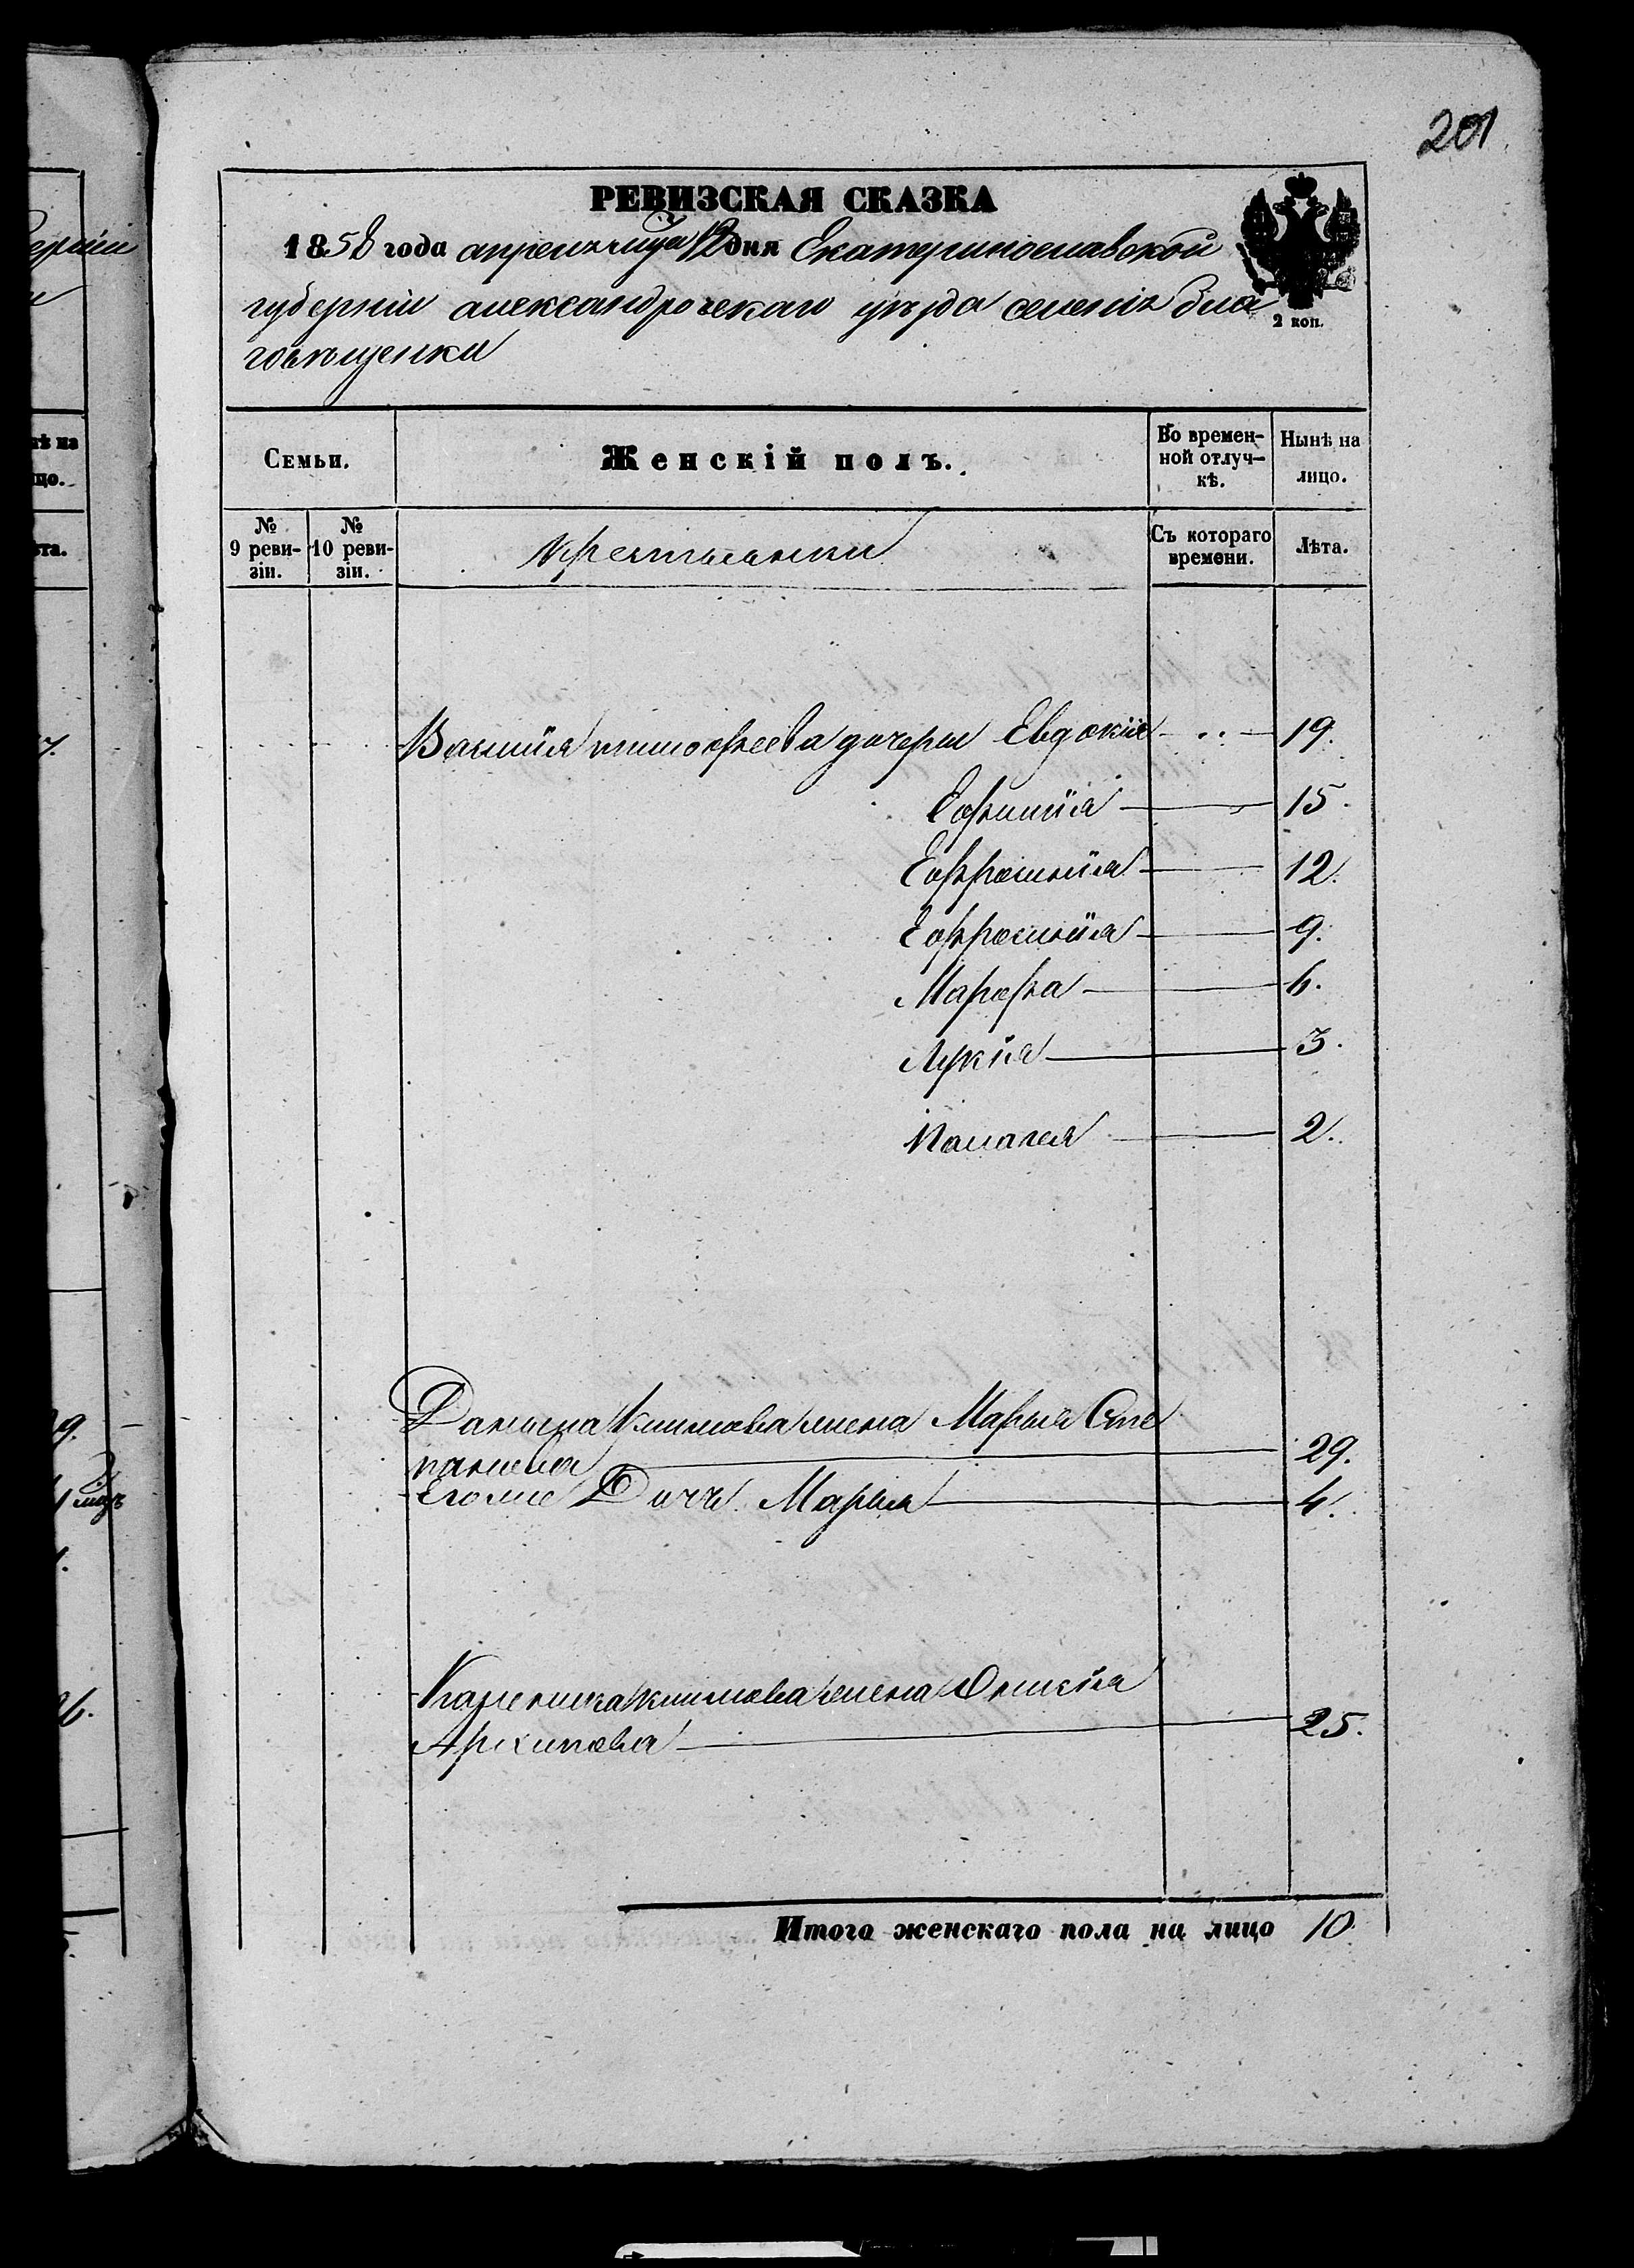 201
РЕВИЗСКАЯ СКАЗКА
1858 года апреля мца 12 дня Екатеринославской
губерніи александровскаго уѣзда селенія бла
говѣщенки
Семьи.
Женскій полъ.
Во времен-
ной отлуч-
кѣ.
Нынѣ на
лицо.
№
9 реви-
зіи.
№
10 реви-
зіи.
Крестьянки
Съ котораго
времени.
Лѣта.
2 коп.
Василія тимофеева дочери Евдокія 19.
Ефимія 15.
Ефросинія 12.
Ефросинія 9.
Марфа 6.
Лукія 3.
Палагея 2.
Данила климова жена Марья Сте
панова 29.
Его же Дочь Марья 4.
климова жена
Архипова 25.
Итого женскаго пола на лицо 10.